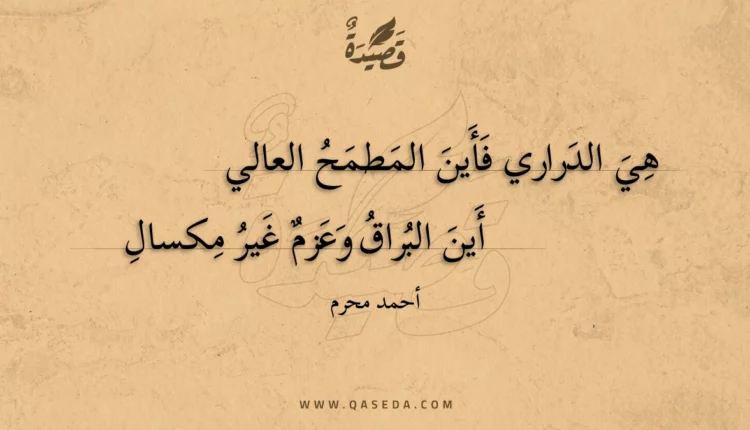 قَصِيدَةٌ
هِيَ الدَراري فَأَينَ المَطمَحُ العالي
أَينَ البُراقُ وَعَزمٌ غَيرُ مِكسالِ
أحمد محرم
WWW.QASEDA.COM